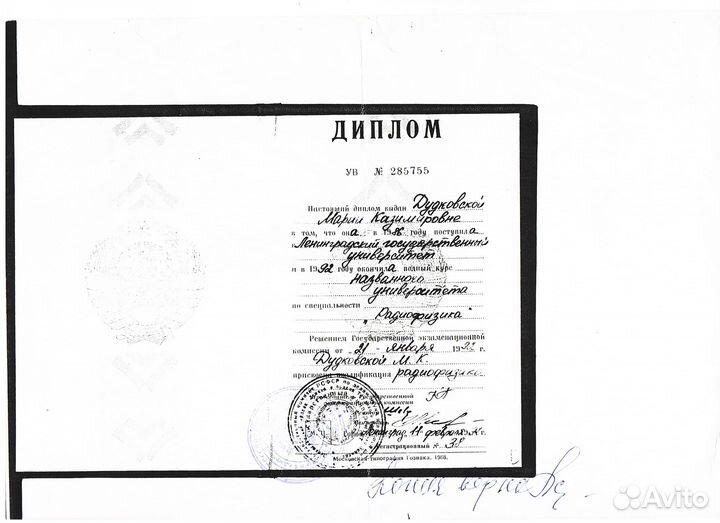 ДИПЛОМ
УВ № 285755
Настоящий диплом выдан Дудковской
Марии Казимировне
в том, что она в 1986 году поступила
в Ленинградский государственный
университет
и в 1992 году окончила полный курс
названного
университета
по специальности
"Радиофизика"
Решением Государственной экзаменационной
комиссии от 21 января 1992 г.
Дудковской М. К.
присвоена квалификация радиофизика
Государственной
экзаменационной комиссии
М. П.
Ленинград, 11 февраля
Регистрационный № 38
Московская типография Гознака. 1988.
Копия верна
Avito